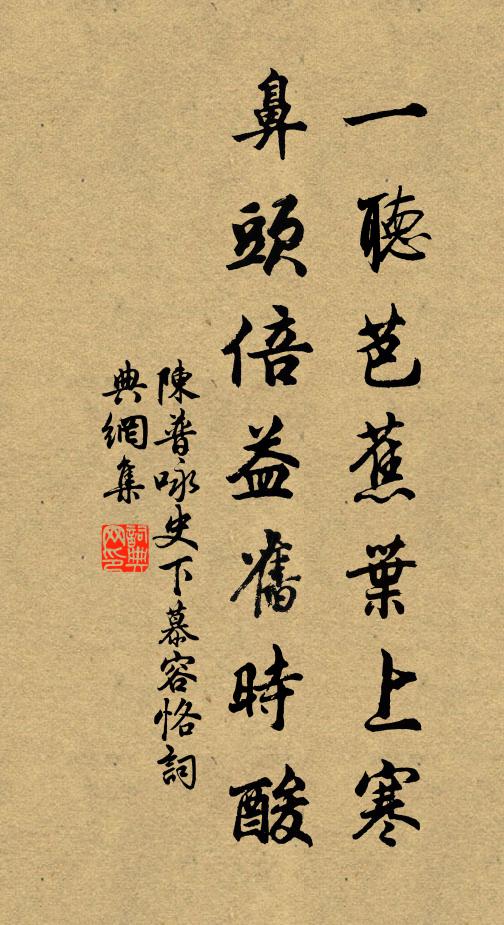 一聽芭蕉葉上寒
鼻頭倍益舊時酸
陳普咏史下慕容恪詞
典網集
詞典
网印